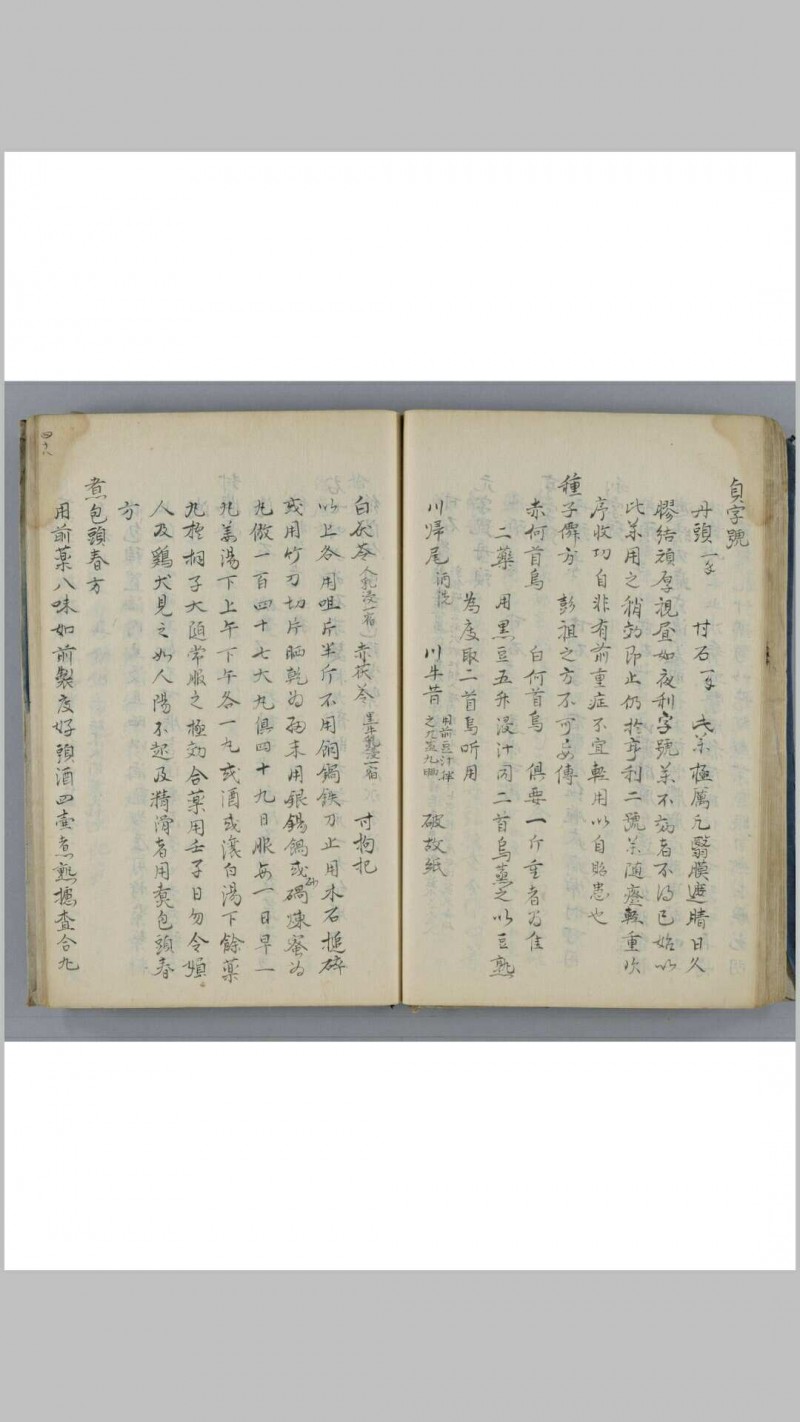 貞字號
丹頭一字 甘石一字 此藥極厲凡翳膜遮睛日久
膠結頑厚視昼如夜利字號藥不病者不得已始以
此藥用之稍効即止仍於亨利二號藥随瘥軽重次
序收功自非有前重症不宜軽用以自貽患也
種子僊方 彭祖之方不可妄傳
赤何首烏 白何首烏 俱要一斤重者為佳
二藥 用黑豆五升浸汁同二首烏蒸之以豆熟
為度取二首烏听用
川帰尾 酒洗 川牛昔 用前豆汁伴之九蒸九晒 破故紙
白茯苓 人乳浸一宿 赤茯苓 黑牛乳浸一宿 甘枸杞
以上各用咀片半斤不用銅鍋鉄刀止用木石搥碎
或用竹刀切片晒乾為細末用銀錫鍋或砂鍋煉蜜為
丸做一百四十七大丸俱四十九日服每一日早一
丸薑湯下上午下午各一丸或酒或滾白湯下餘藥
丸梧桐子大随常服之極効合藥用壬子日勿令婦
人及鷄犬見之如人陽不起及精滑者用煮包頭春
方
煮包頭春方
用前藥八味如前製度好頭酒四壺煮熟攄查合丸
四十八